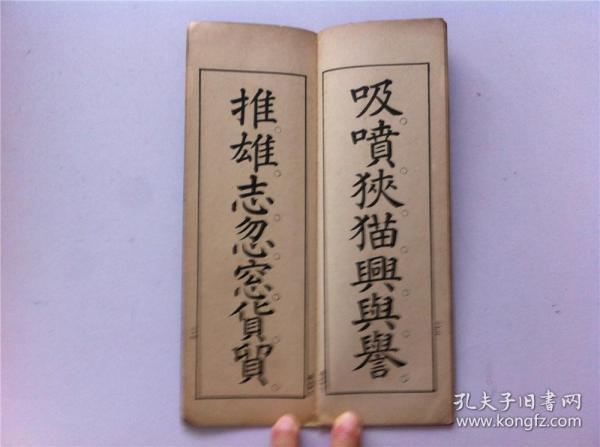 吸噴狹猫興與譽
推雄志忽窓貨貿
孔夫子旧书网
www.kongfz.com